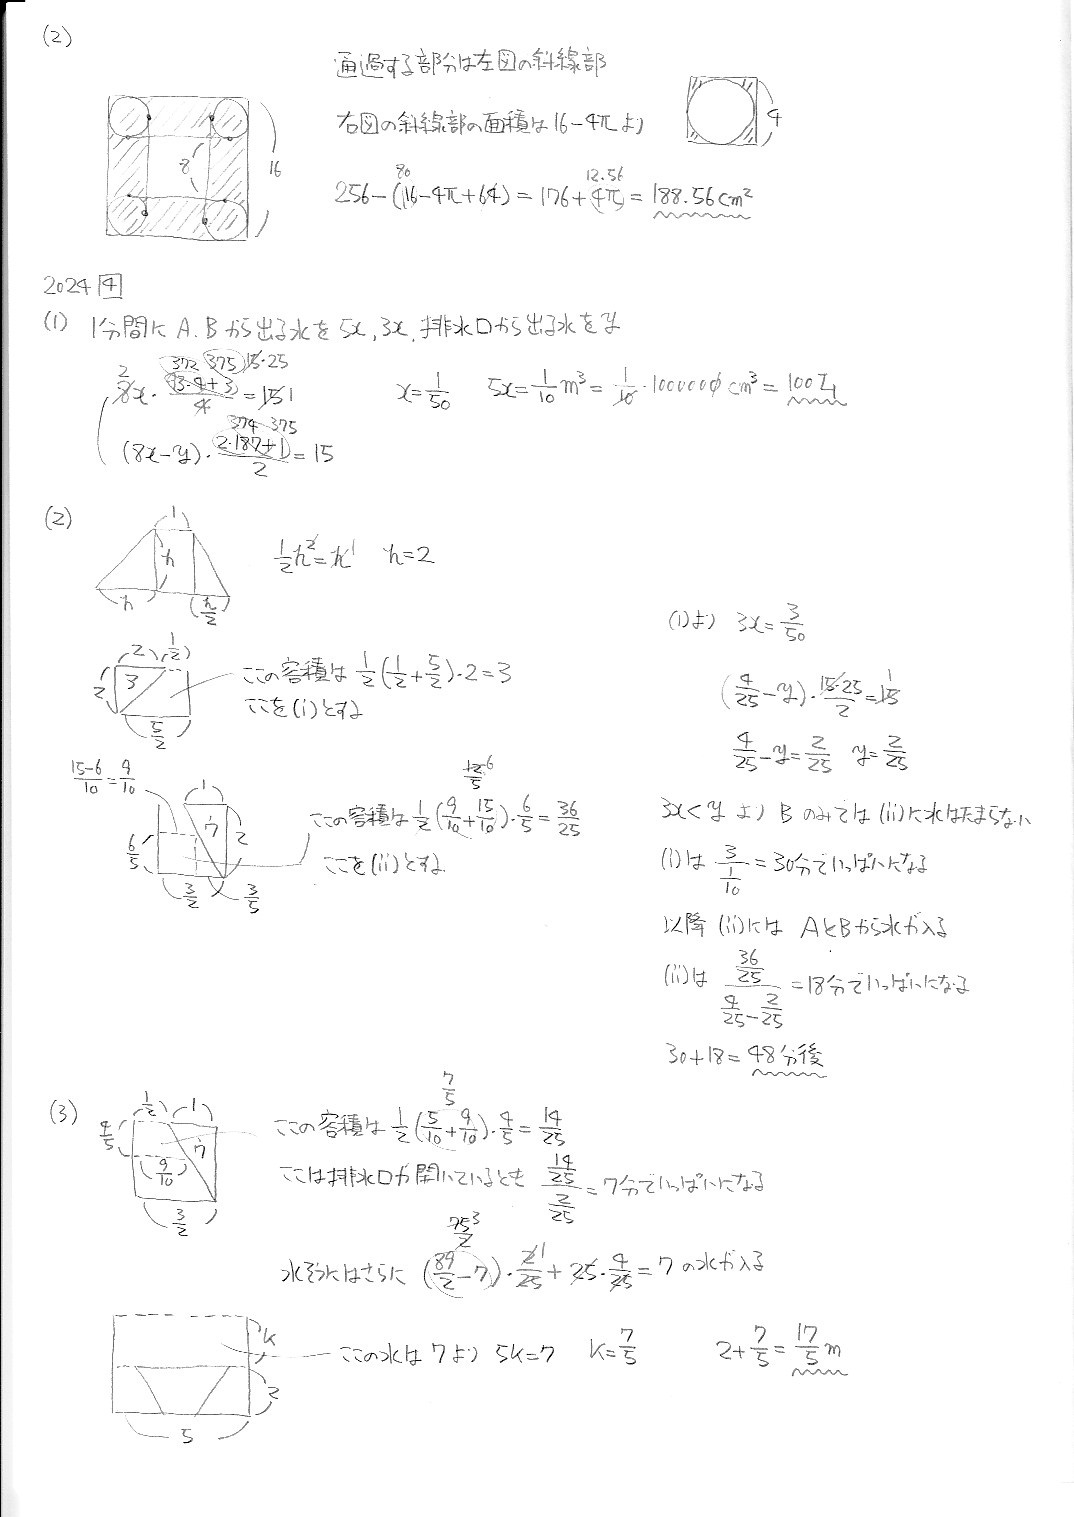 (2)
通過する部分は左図の斜線部
右図の斜線部の面積は16-4πより
8
16
4
80
12.56
256-(16-4π+64)=176+4π=188.56cm²
2024 4
(1) 1分間にA.Bから出る水を5x,3x,排水口から出る水をy
2 372 375 15・25
8x・(93・4+3)/4=151
x=1/50 5x=1/10m³=1/10・1000000cm³=100L
374 375
(8x-y)・(2・187+1)/2=15
(2)
1
h
h
h/2
1/2h²=h h=2
2 1/2
2 3
5/2
ここの容積は1/2(1/2+5/2)・2=3
ここを(i)とする
(15-6)/10=9/10
1
7
2
6/5
3/2 3/5
12/5 6
ここの容積は1/2(9/10+15/10)・6/5=36/25
ここを(ii)とする
(1)より 3x=3/50
(4/25-y)・15・25/2=15
4/25-y=2/25 y=2/25
3x<yよりBのみでは(ii)に水はたまらない
(i)は3/(1/10)=30分でいっぱいになる
以降(ii)にはAとBから水が入る
(ii)は(36/25)/(4/25-2/25)=18分でいっぱいになる
30+18=48分後
(3)
1/2 1
4/5
7
9/10
3/2
7/5
ここの容積は1/2(5/10+9/10)・4/5=14/25
ここは排水口が開いているとき(14/25)/(2/25)=7分でいっぱいになる
75/2 3
水そうにはさらに(89/2-7)・2/25+25・4/25=7の水が入る
k
2
5
ここの水は7より 5k=7 k=7/5 2+7/5=17/5m